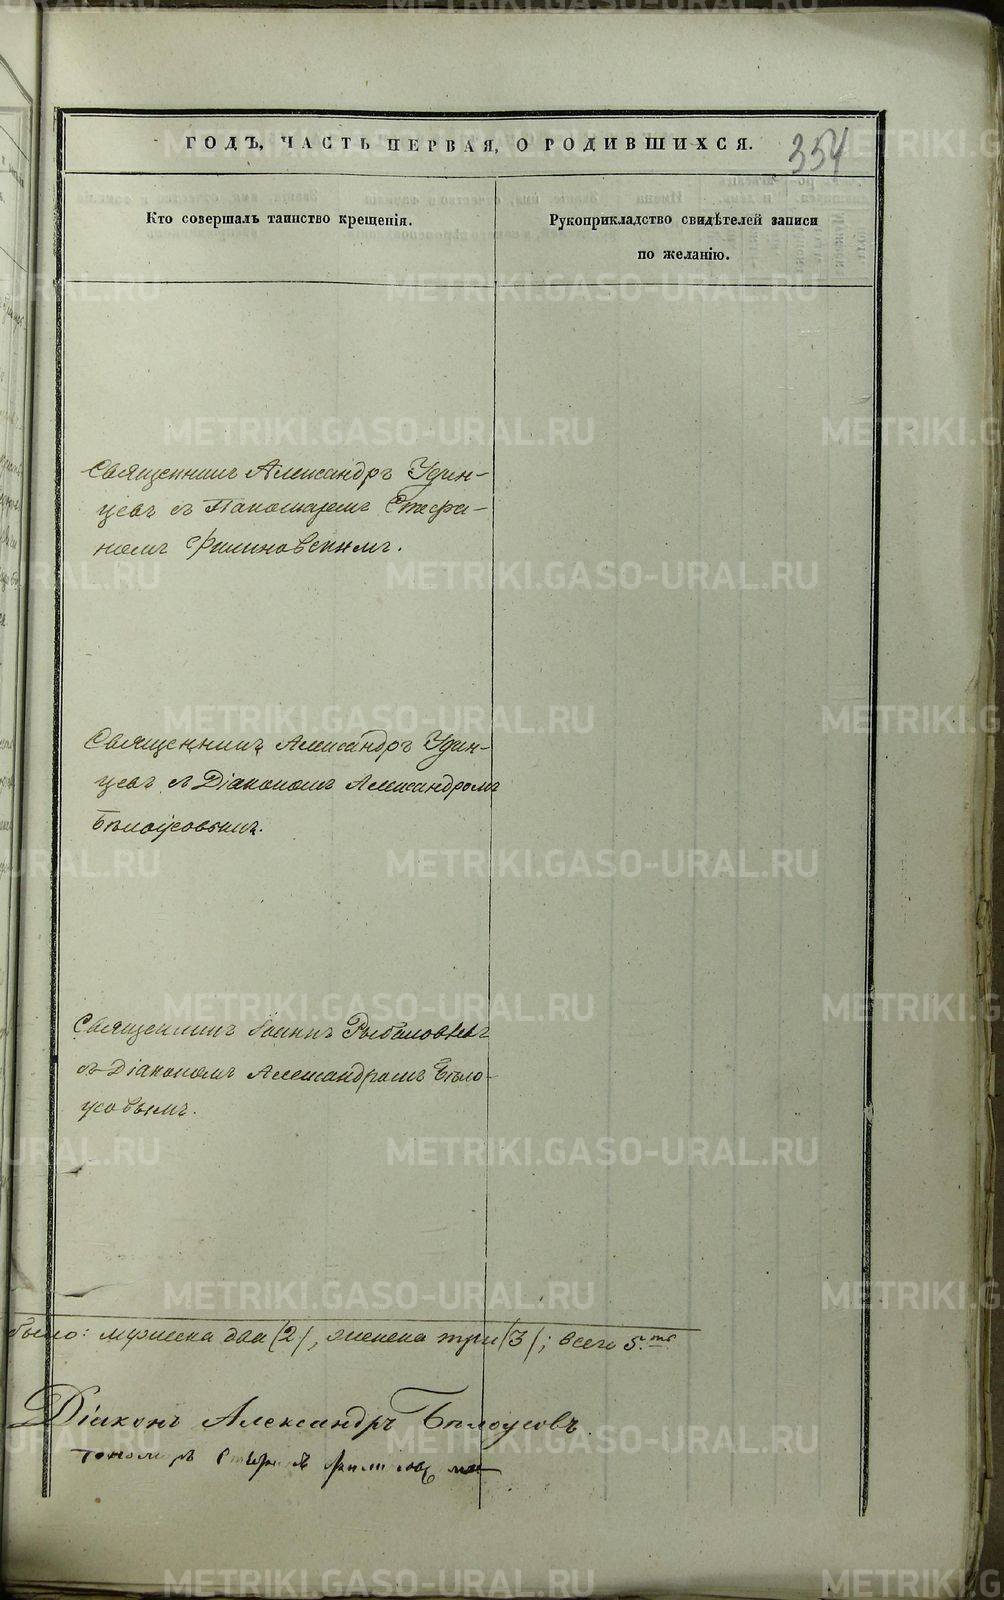 ГОДЪ, ЧАСТЬ ПЕРВАЯ, О РОДИВШИХСЯ.
354
Кто совершалъ таинство крещенія.
Рукоприкладство свидѣтелей записи
по желанію.
Священникъ Александръ Удин-
цевъ съ Пономаремъ Стефа-
номъ Филиновскимъ.
Священникъ Александръ Удин-
цевъ съ Діакономъ Александромъ
Бѣлоусовымъ.
Священникъ Іоаннъ
съ Діакономъ Александромъ Бѣло-
усовымъ.
было: мужеска два (2), женска три (3); всего 5.
Діаконъ Александръ Бѣлоусовъ.
METRIKI.GASO-URAL.RU